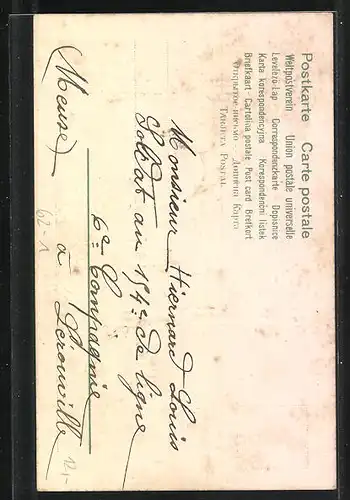 Postkarte Carte postale
Weltpostverein Union postale universelle
Levelező-Lap Correspondenzkarte Dopisnice
Karta korespondencyjna Korespondenční lístek
Briefkaart - Cartolina postale Post card Brefkort
Открытое письмо - Дописна Карта
TARJETA POSTAL
Monsieur Hiernard Louis
Soldat au 154e de ligne
6e Compagnie
à Lérouville
(Meuse)
62-1
12,-